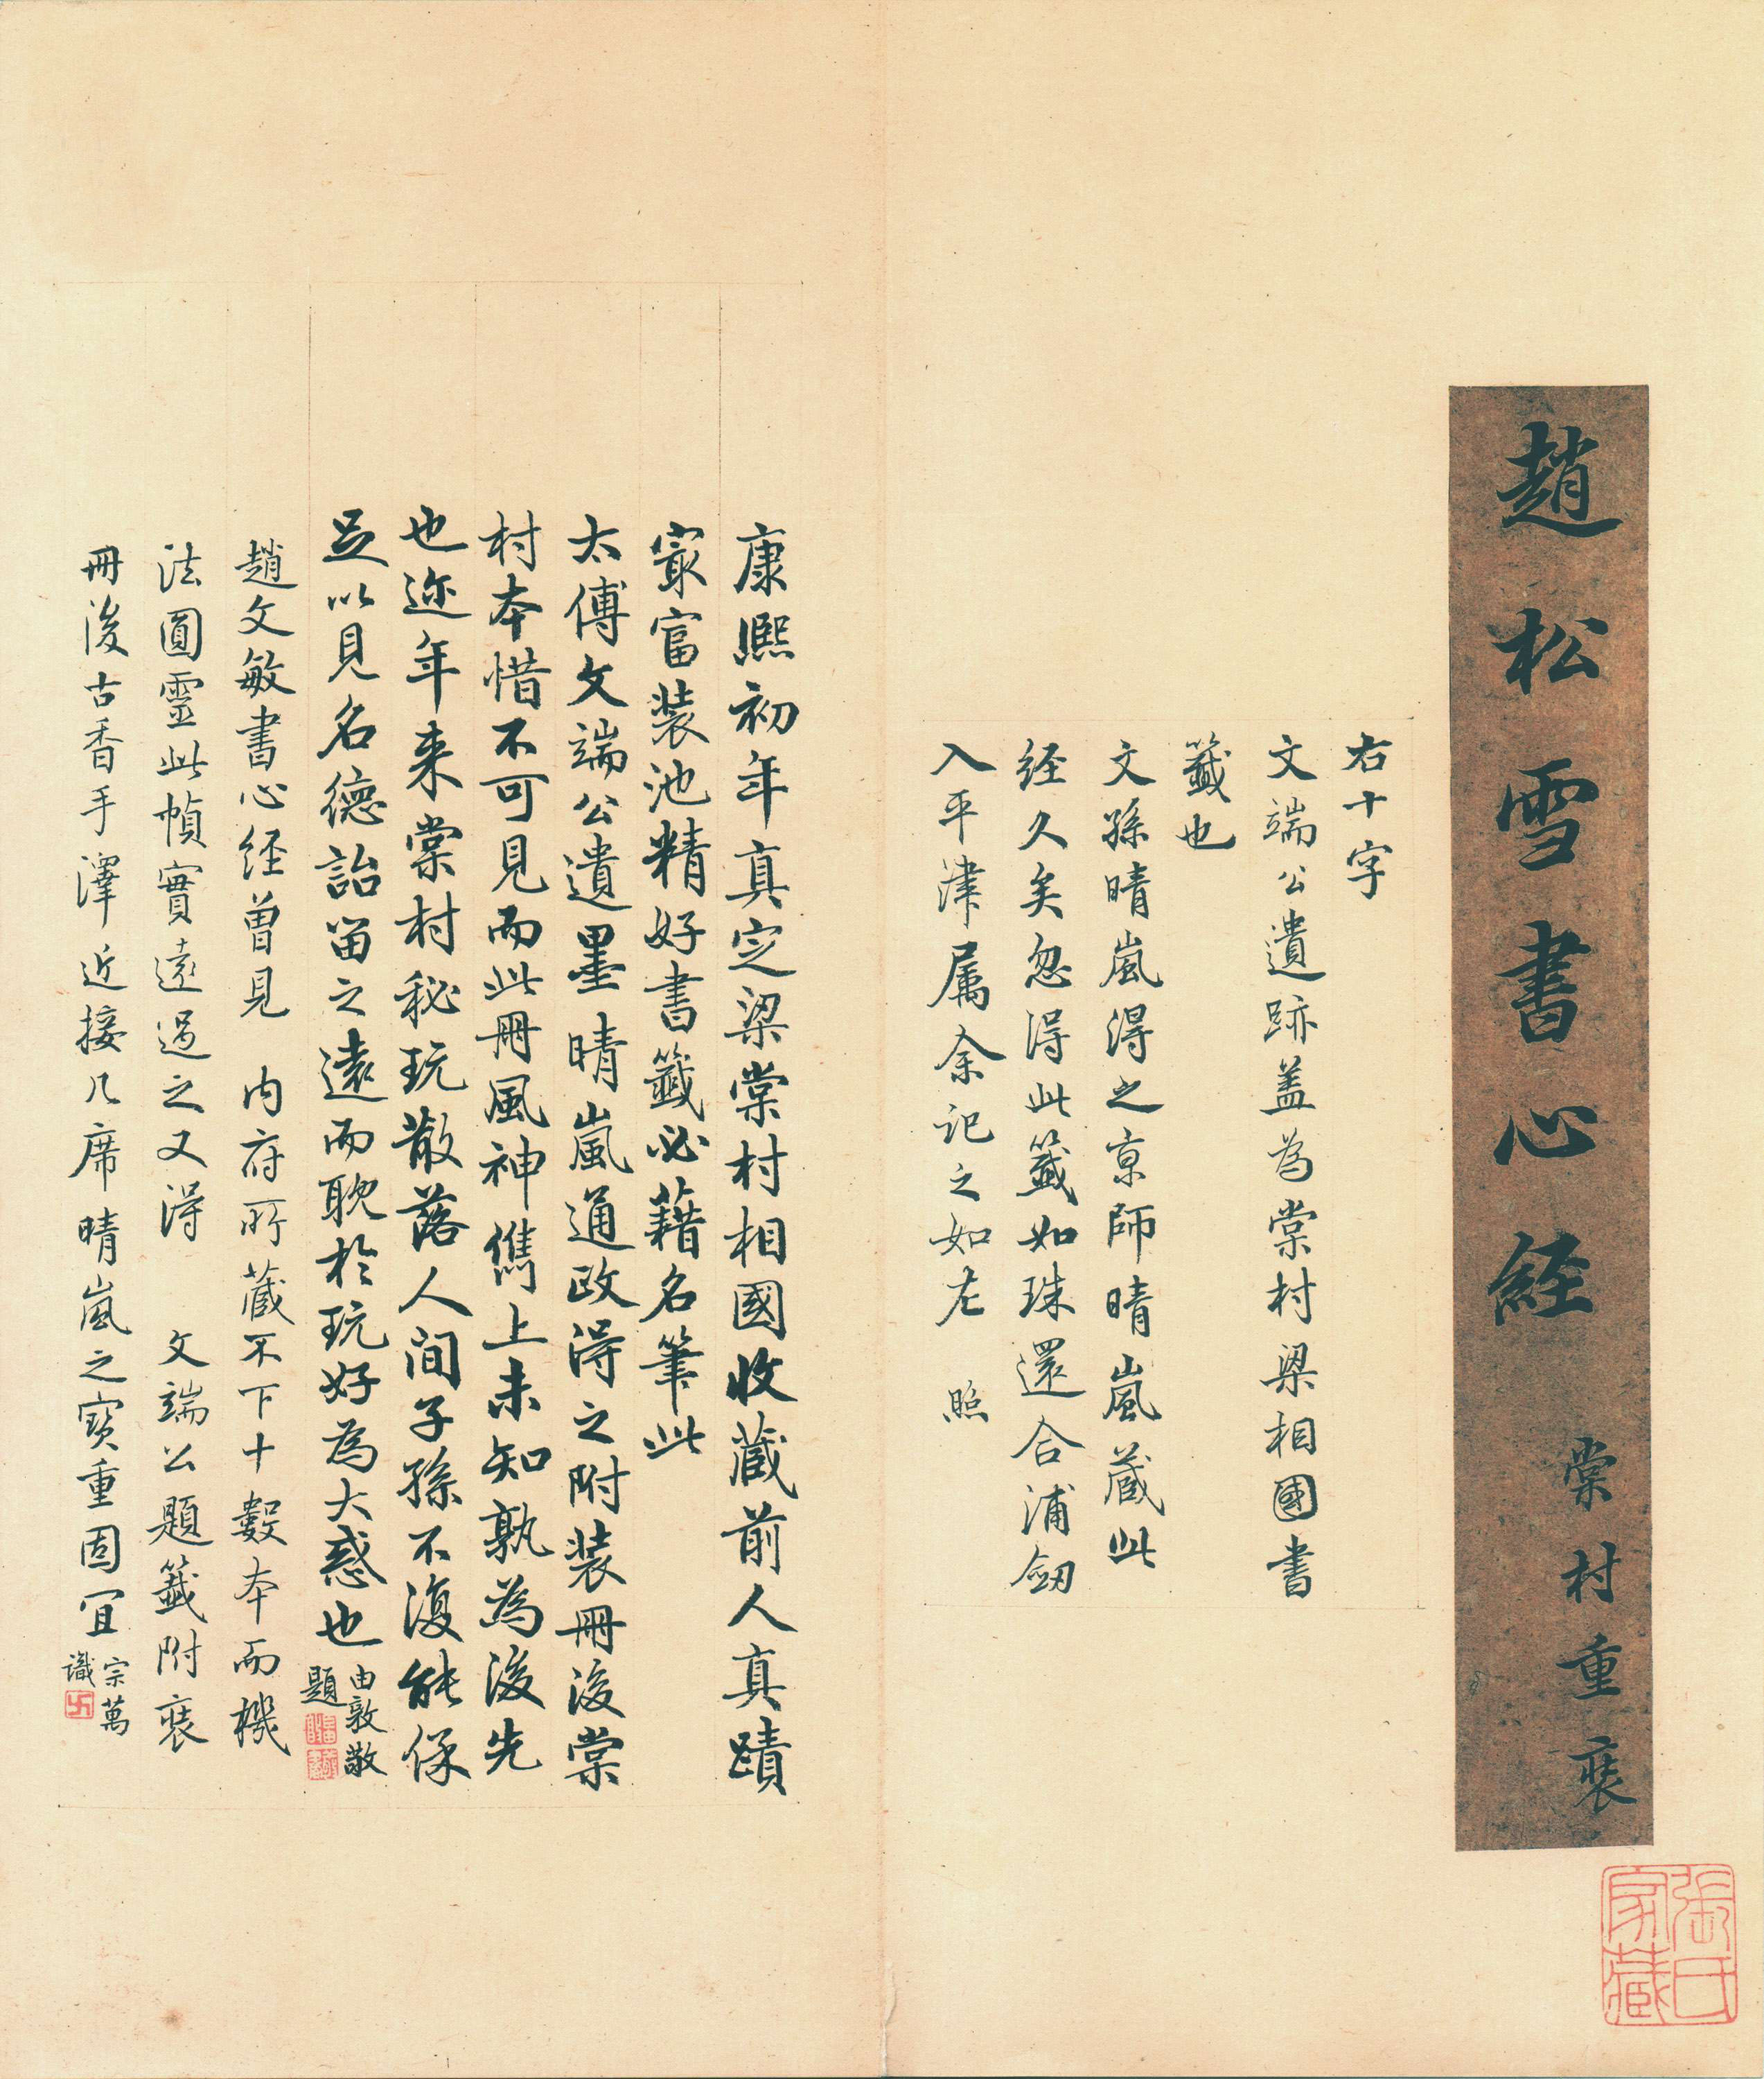 趙松雪書心經
棠村重裝
右十字
文端公遺跡蓋為棠村梁相國書
籤也
文孫晴嵐得之京師晴嵐蔵此
経久矣忽得此籤如珠還合浦劔
入平津属余記之如左 照
康熙初年真定梁棠村相國收蔵前人真蹟
冣富装池精好書籤必藉名筆此
太傅文端公遺墨晴嵐通政得之附装冊後棠
村本惜不可見而此冊風神儁上未知孰為後先
也迩年来棠村秘玩散落人间子孫不復能保
足以見名德詒畱之遠而耽於玩好為大惑也
由敦敬
題
趙文敏書心経曾見 内府所蔵不下十數本而機
法圓靈此幀實遠過之又得 文端公題籤附裝
冊後古香手澤近接几席晴嵐之寶重固宜
宗萬
識
卍
張氏
家藏